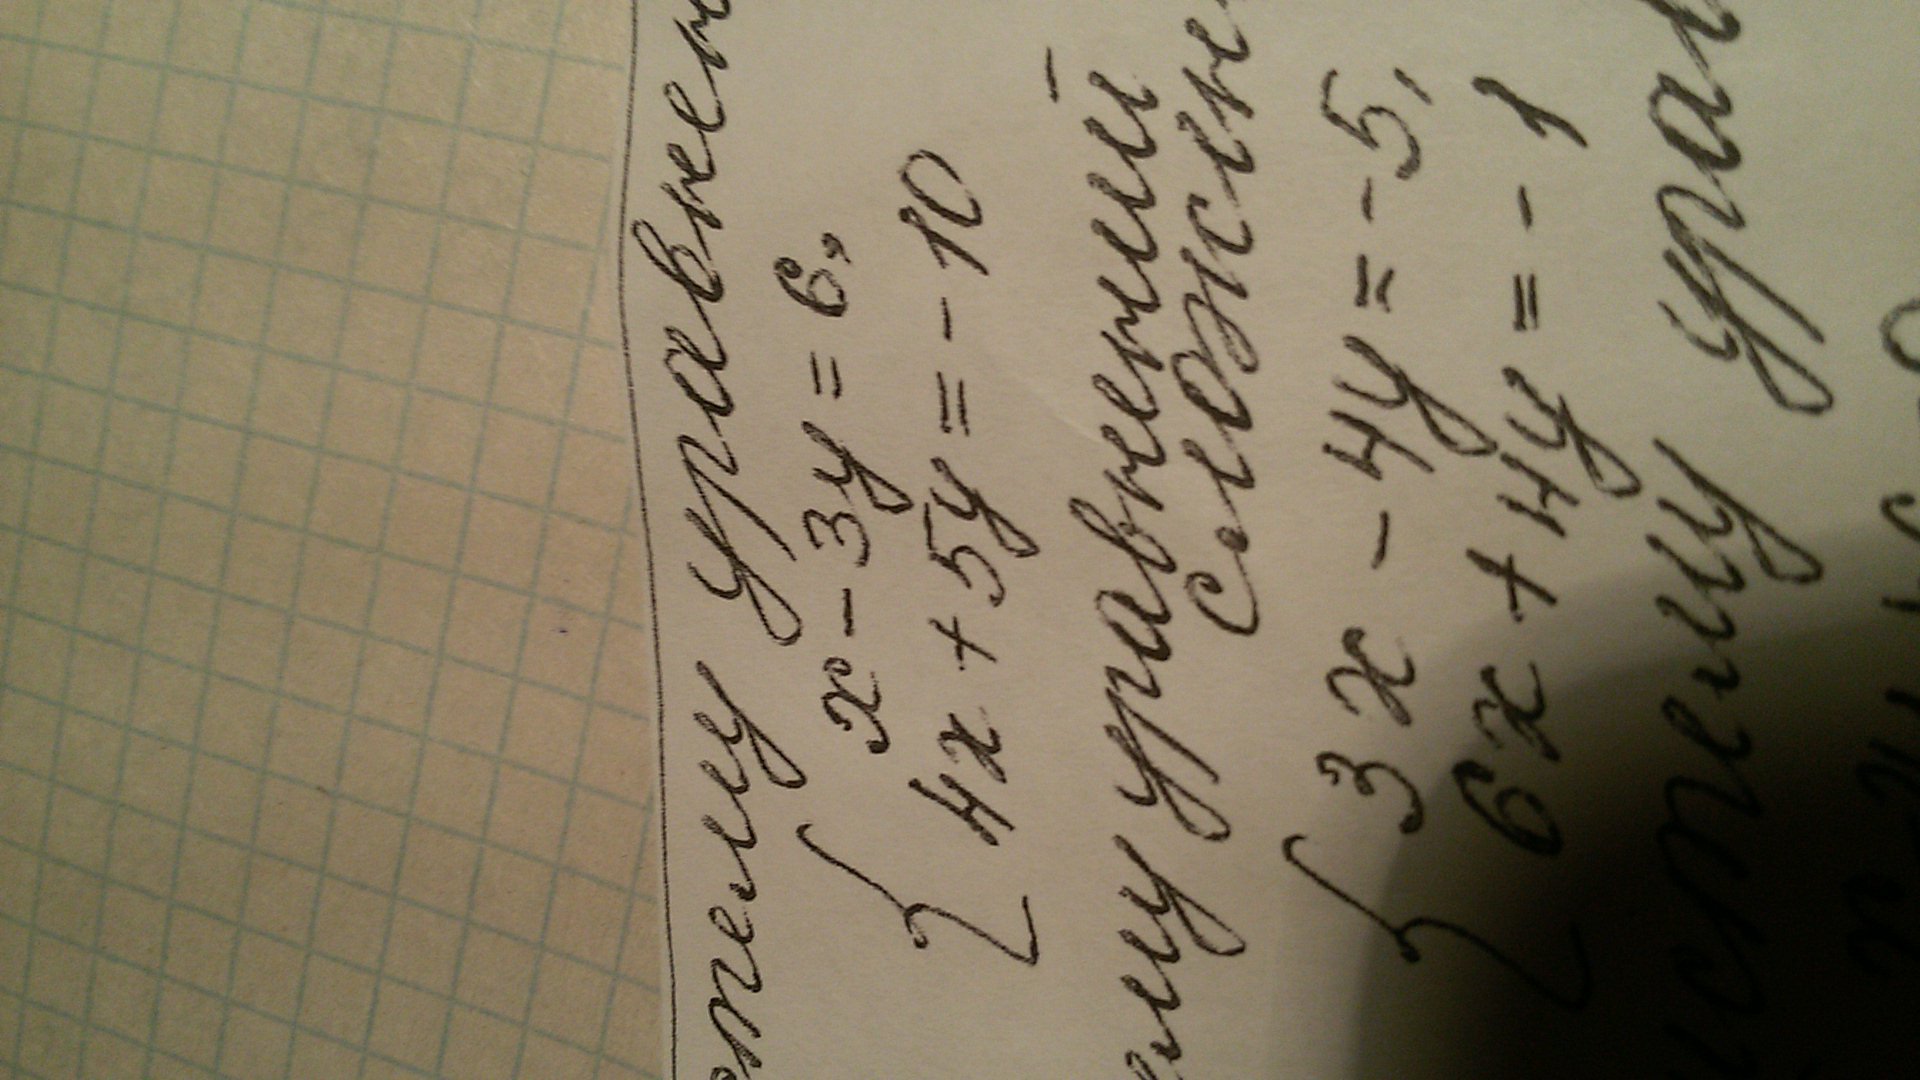 систему уравнен
x - 3y = 6,
4x + 5y = - 10
ему уравнений
сложен
3x - 4y = - 5,
6x + 4y = - 1
систему урав